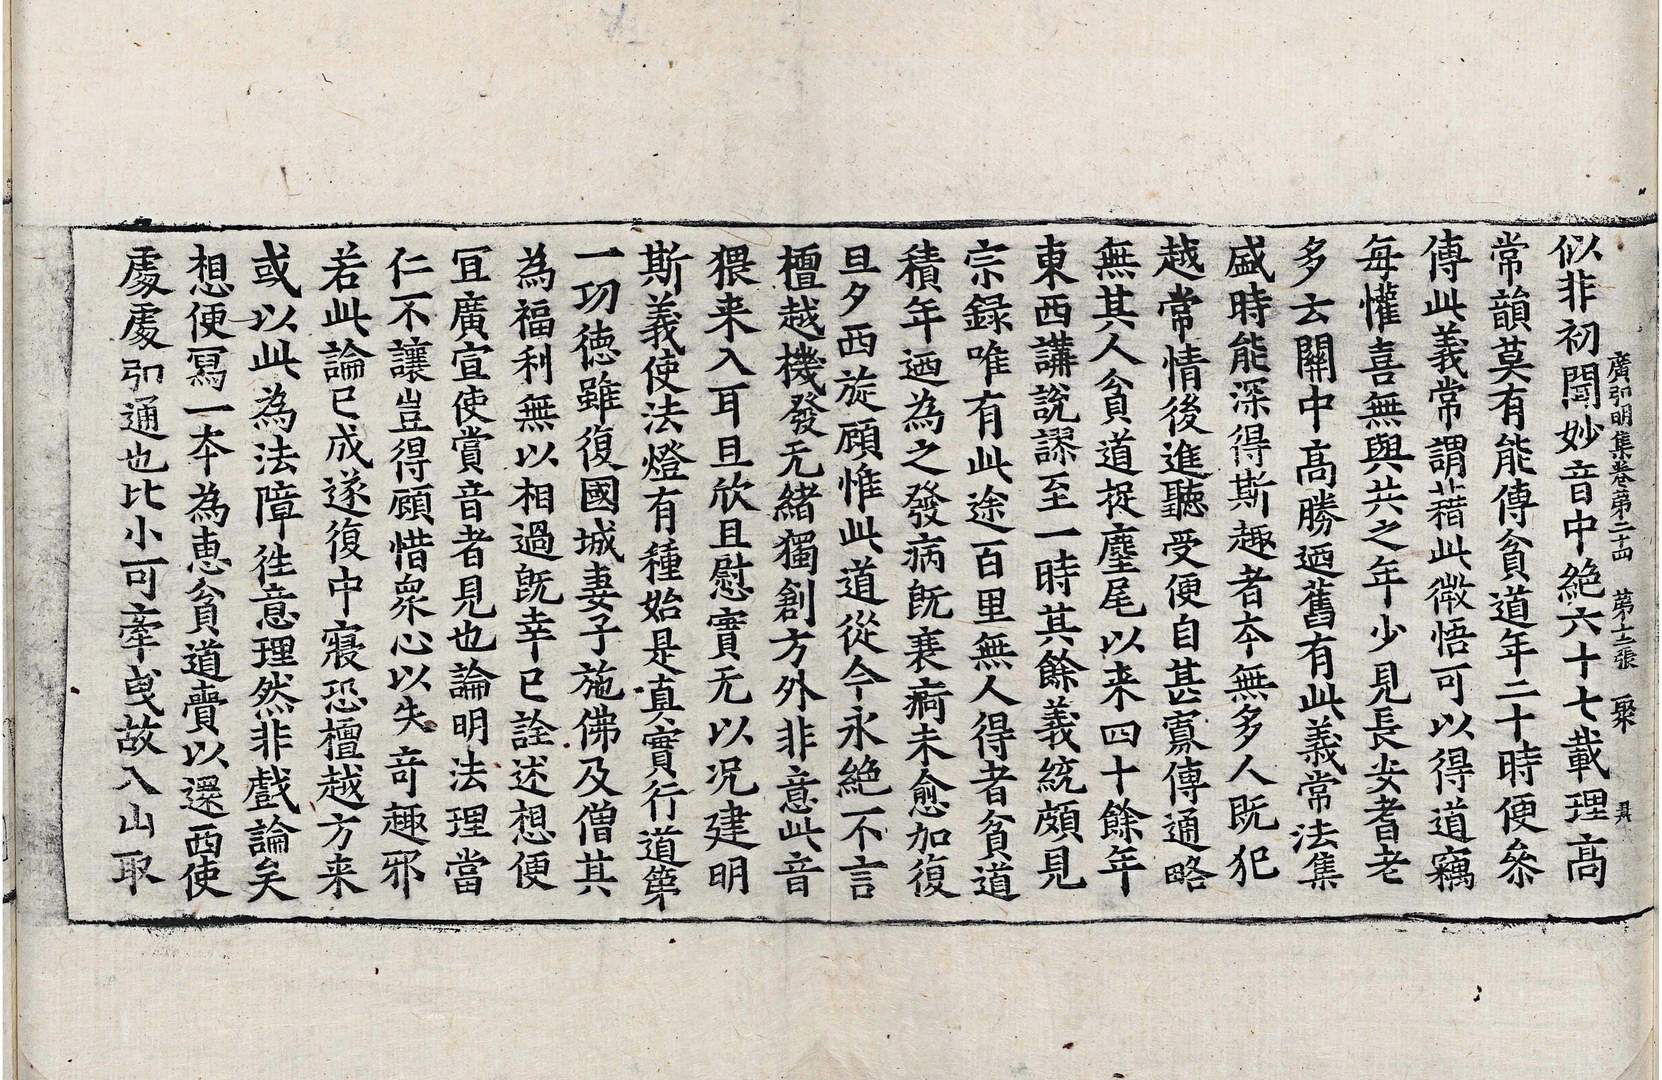 廣弘明集卷第二十四　第十三張　聚
似非初聞妙音中絶六十七載理高
常韻莫有能傳貧道年二十時便叅
傳此義常謂藉此微悟可以得道竊
每懽喜無與共之年少見長安耆老
多云關中高勝迺舊有此義常法集
盛時能深得斯趣者夲無多人既犯
越常情後進聽受便自甚寡傳通略
無其人貧道捉麈尾以来四十餘年
東西講說謬至一時其餘義統頗見
宗録唯有此途百里無人得者貧道
積年迺為之發病既衰痾未愈加復
旦夕西旋顧惟此道從今永絶不言
檀越機發无緒獨創方外非意此音
猥来入耳且欣且慰實无以况建明
斯義使法燈有種始是真實行道第
一功徳雖復國城妻子施佛及僧其
為福利無以相過既幸已詮述想便
宜廣宣使賞音者見也論明法理當
仁不讓豈得顧惜衆心以失奇趣邪
若此論已成遂復中寢恐檀越方来
或以此為法障徃意理然非戲論矣
想便冩一夲為惠貧道賷以還西使
處處弘通也比小可牽曵故入山取